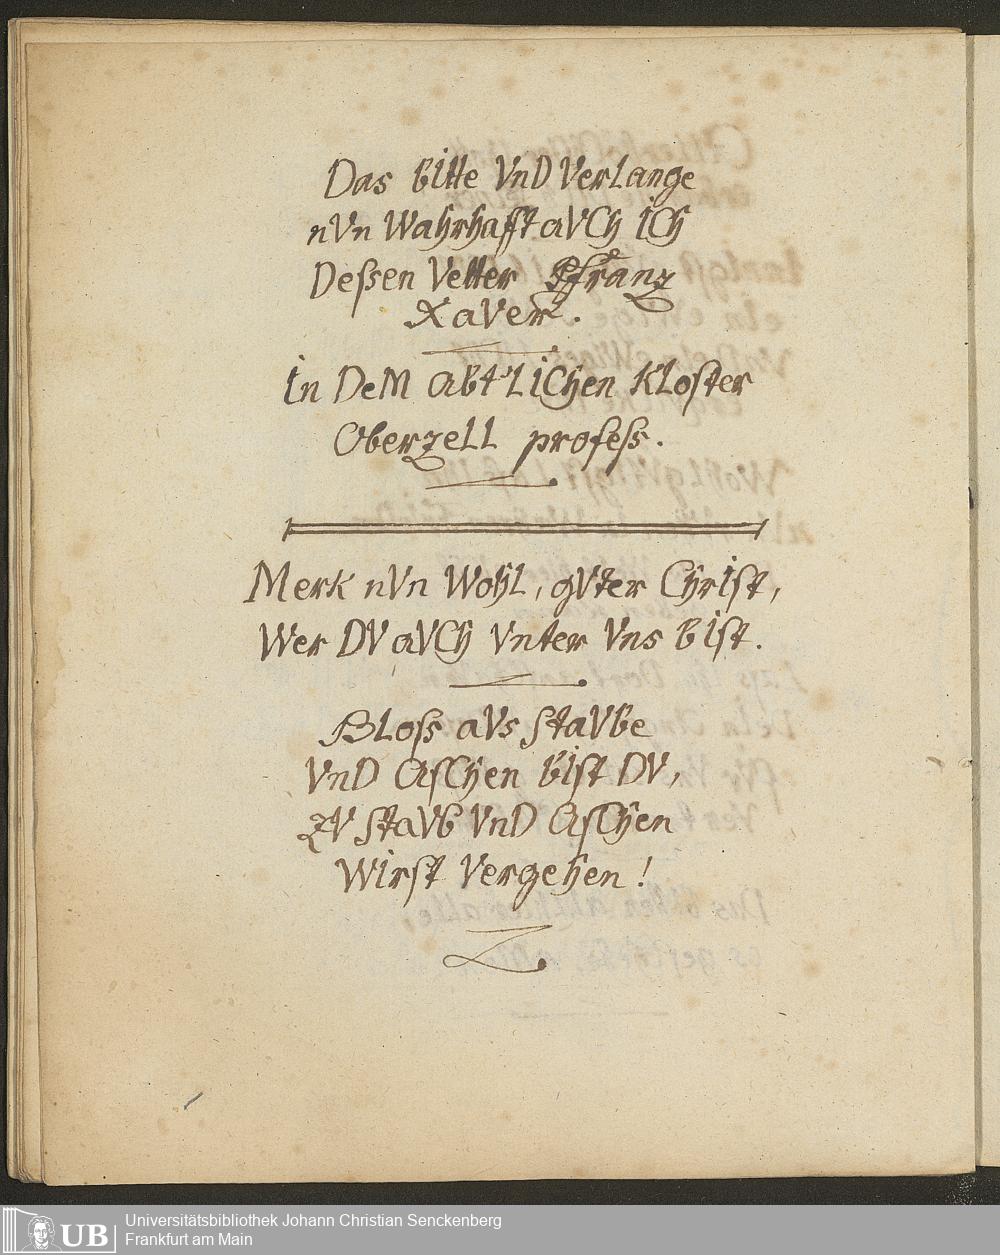 Das bItte VnD VerLange
nVn Wahrhafft aVCh ICh
Deßen Vetter Pfranz
XaVer.
In DeM abt'LICHen KLoster
OberzeLL profess.
Merk nVn WohL, gVter ChrIst,
Wer DV aVCh Vnter Vns bIst.
BLoss aVs StaVbe
VnD AsChen bIst DV,
zV StaVb VnD AsChen
WIrst Vergehen!
UB
Universitätsbibliothek Johann Christian Senckenberg
Frankfurt am Main